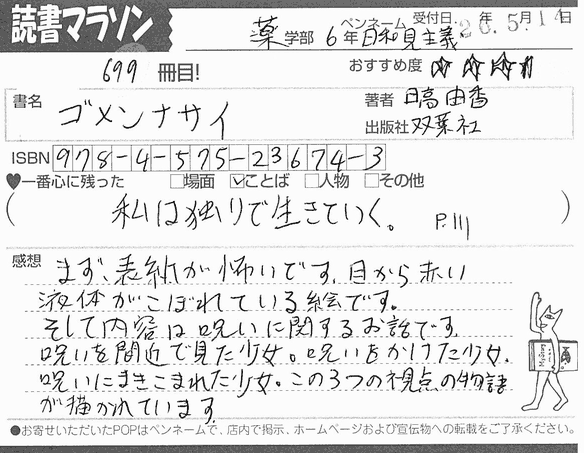 読書マラソン
薬学部 6年 ペンネーム 日和見主義 受付日: 26年5月14日
699 冊目! おすすめ度 ☆☆☆☆
書名 ゴメンナサイ 著者 日高由香
出版社 双葉社
ISBN 978-4-575-23674-3
♥一番心に残った □場面 ☑ことば □人物 □その他
(私は独りで生きていく。 P.111)
感想 まず、表紙が怖いです。目から赤い
液体がこぼれている絵です。
そして内容は呪いに関するお話です。
呪いを間近で見た少女。呪いをかけた少女。
呪いにまきこまれた少女。この3つの視点の物語
が描かれています。
●お寄せいただいたPOPはペンネームで、店内で掲示、ホームページおよび宣伝物への転載をご了承ください。